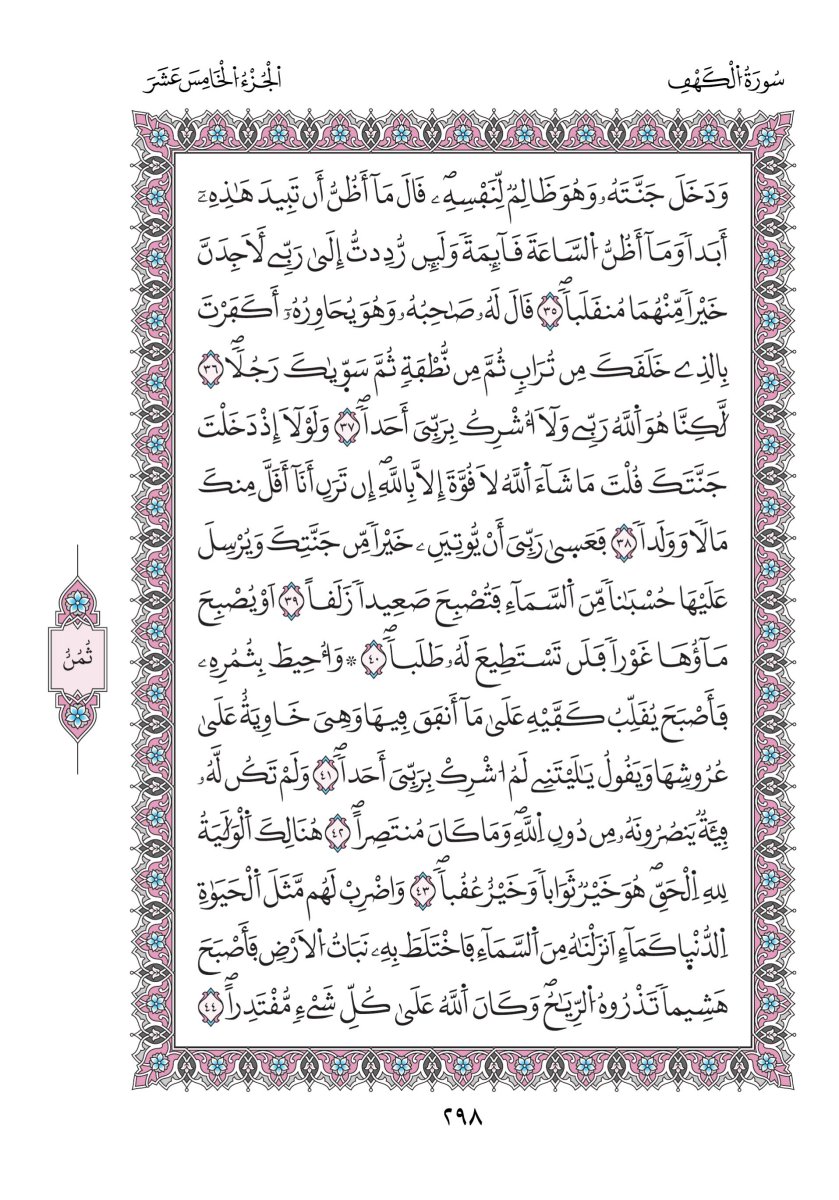 سُورَةُ اُ۬لْكَهْفِ
اَ۬لْجُزْءُ اُ۬لْخَامِسَ عَشَرَ
وَدَخَلَ جَنَّتَهُۥ وَهُوَ ظَالِمٞ لِّنَفْسِهِۦۖ قَالَ مَآ أَظُنُّ أَن تَبِيدَ هَٰذِهِۦٓ
أَبَداٗ وَمَآ أَظُنُّ اُ۬لسَّاعَةَ قَآئِمَةٗ وَلَئِن رُّدِدتُّ إِلَىٰ رَبِّے لَأَجِدَنَّ
خَيْراٗ مِّنْهُمَا مُنقَلَباٗۖ ٣٥ قَالَ لَهُۥ صَاحِبُهُۥ وَهُوَ يُحَاوِرُهُۥٓ أَكَفَرْتَ
بِالذِے خَلَقَكَ مِن تُرَابٖ ثُمَّ مِن نُّطْفَةٖ ثُمَّ سَوّ۪يٰكَ رَجُلاٗۖ ٣٦
لَّٰكِنَّا هُوَ اَ۬للَّهُ رَبِّے وَلَآ أُشْرِكُ بِرَبِّيَ أَحَداٗۖ ٣٧ وَلَوْلَآ إِذْ دَخَلْتَ
جَنَّتَكَ قُلْتَ مَا شَآءَ اَ۬للَّهُ لَا قُوَّةَ إِلَّا بِاللَّهِۖ إِن تَرَنِ أَنَآ أَقَلَّ مِنكَ
مَالاٗ وَوَلَداٗ ٣٨ فَعَس۪يٰ رَبِّيَ أَنْ يُّوتِيَنِۦ خَيْراٗ مِّن جَنَّتِكَ وَيُرْسِلَ
عَلَيْهَا حُسْبَاناٗ مِّنَ اَ۬لسَّمَآءِ فَتُصْبِحَ صَعِيداٗ زَلَقاً ٣٩ اَوْ يُصْبِحَ
مَآؤُهَا غَوْراٗ فَلَن تَسْتَطِيعَ لَهُۥ طَلَباٗۖ ٤٠ ۞ وَأُحِيطَ بِثُمُرِهِۦ
فَأَصْبَحَ يُقَلِّبُ كَفَّيْهِ عَلَىٰ مَآ أَنفَقَ فِيهَا وَهِيَ خَاوِيَةٌ عَلَىٰ
عُرُوشِهَا وَيَقُولُ يَٰلَيْتَنِے لَمُ أُشْرِكْ بِرَبِّيَ أَحَداٗۖ ٤١ وَلَمْ تَكُن لَّهُۥ
فِئَةٞ يَنصُرُونَهُۥ مِن دُونِ اِ۬للَّهِۖ وَمَا كَانَ مُنتَصِراًۖ ٤٢ هُنَالِكَ اَ۬لْوَلَٰيَةُ
لِلهِ اِ۬لْحَقِّۖ هُوَ خَيْرٞ ثَوَاباٗ وَخَيْرٌ عُقُباٗۖ ٤٣ وَاضْرِبْ لَهُم مَّثَلَ اَ۬لْحَيَوٰةِ
اِ۬لدُّنْي۪ا كَمَآءٍ اَنزَلْنَٰهُ مِنَ اَ۬لسَّمَآءِ فَاخْتَلَطَ بِهِۦ نَبَاتُ اُ۬لَارْضِ فَأَصْبَحَ
هَشِيماٗ تَذْرُوهُ اُ۬لرِّيَٰحُۖ وَكَانَ اَ۬للَّهُ عَلَىٰ كُلِّ شَےْءٖ مُّقْتَدِراًۖ ٤٤
ثُمُنُ
٢٩٨